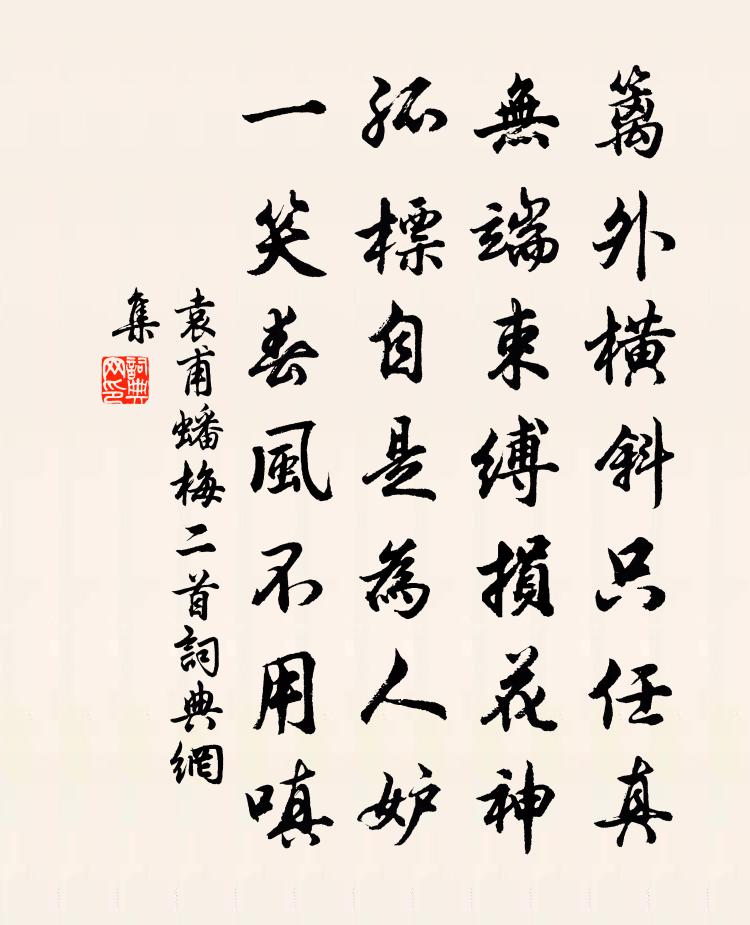 籬外橫斜只任真
無端束縛損花神
孤標自是為人妒
一笑春風不用嗔
袁甫蟠梅二首詞典網
集
詞典
网印